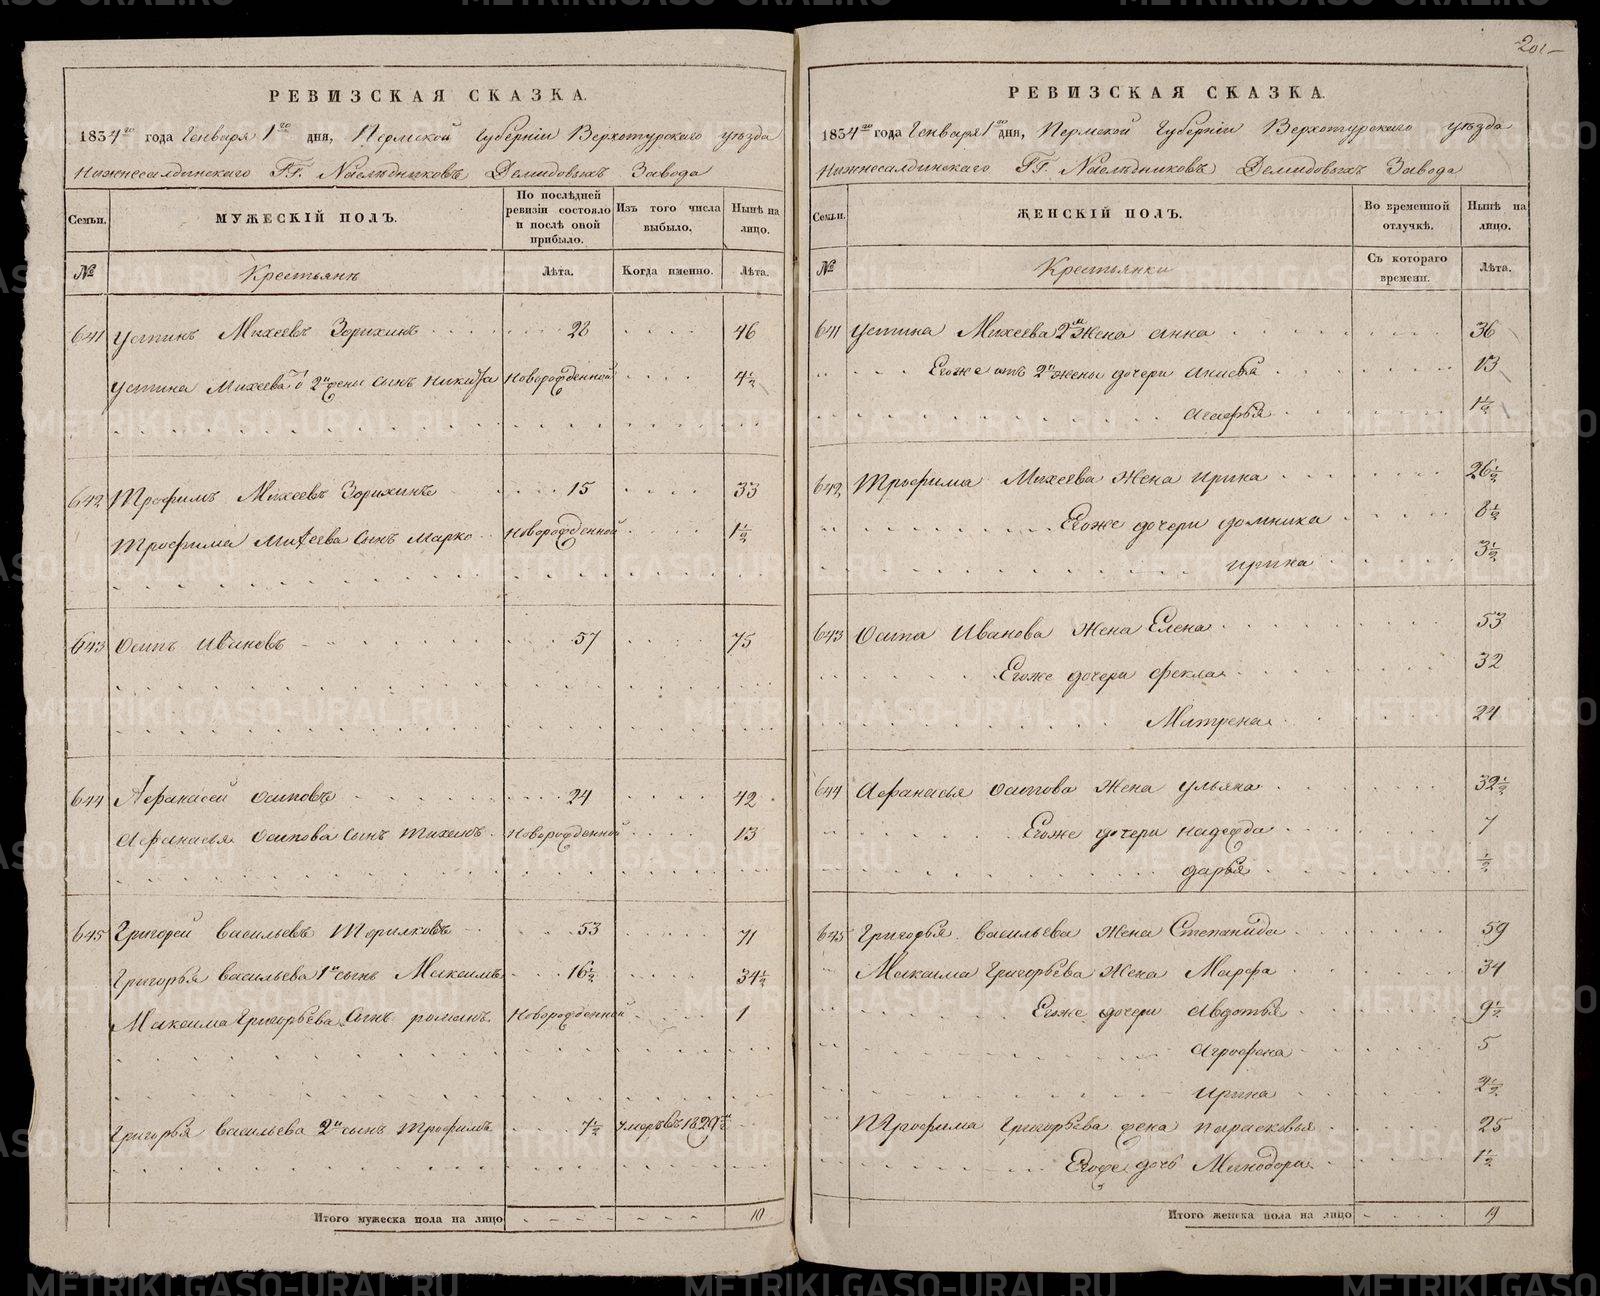 201
РЕВИЗСКАЯ СКАЗКА.
1834го года Генваря 1го дня, Пермской Губернiи Верхотурскаго уѣзда
Нижнесалдинскаго ГГ. Наслѣдниковъ Демидовыхъ Завода
Семьи. МУЖЕСКІЙ ПОЛЪ. По послѣдней ревизіи состояло и послѣ оной прибыло. Изъ того числа выбыло. Нынѣ на лицо.
№ Крестьянъ Лѣта. Когда именно. Лѣта.
641 Устинъ Михеевъ Зорихинъ 28 46
Устина Михеева 2й жены сынъ Никита Новорожденной 4½
642 Трофимъ Михеевъ Зорихинъ 15 33
Трофима Михеева сынъ Марко Новорожденной 1½
643 Осипъ Ивановъ 57 75
644 Афанасей Осиповъ 24 42
Афанасья Осипова сынъ Тихонъ Новорожденной 13
645 Григорей Васильевъ 53 71
Григорья Васильева 1й сынъ Максимъ 16½ 34½
Максима Григорьева сынъ Романъ Новорожденной 1
Григорья Васильева 2й сынъ Трофимъ 7½ умеръ въ 1829м
Итого мужеска пола на лицо 10
РЕВИЗСКАЯ СКАЗКА.
1834го года Генваря 1го дня, Пермской Губернiи Верхотурскаго уѣзда
Нижнесалдинскаго ГГ. Наслѣдниковъ Демидовыхъ Завода
Семьи. ЖЕНСКІЙ ПОЛЪ. Во временной отлучкѣ. Нынѣ на лицо.
№ Крестьянки Съ котораго времени. Лѣта.
641 Устина Михеева 2я Жена Анна 36
Егоже отъ 2й жены дочери Анисья 13
Агафья 1½
642 Трофима Михеева Жена Ирина 26½
Егоже дочери Домника 8½
Ирина 3½
643 Осипа Иванова Жена Елена 53
Егоже дочери Фекла 32
Матрена 24
644 Афанасья Осипова Жена Ульяна 32½
Егоже дочери Надежда 7
Дарья ½
645 Григорья Васильева Жена Степанида 59
Максима Григорьева Жена Марфа 34
Егоже дочери Авдотья 9½
Агрофена 5
Ирина 2½
Трофима Григорьева жена Парасковья 25
Егоже дочь Минодора 1½
Итого женска пола на лицо 19
METRIKI.GASO-URAL.RU